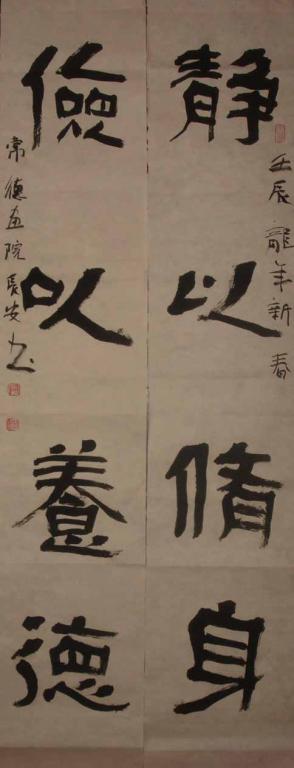 静以脩身
壬辰龍年新春
儉以養德
常德画院長安书